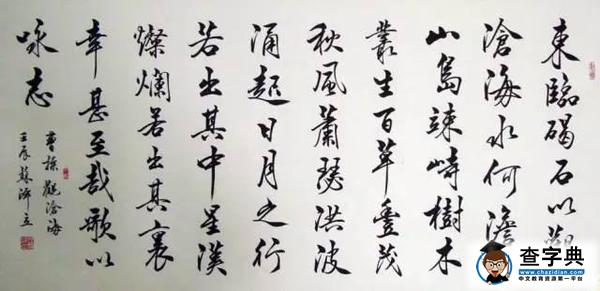 東臨碣石以觀
滄海水何澹
山島竦峙樹木
叢生百草豐茂
秋風蕭瑟洪波
涌起日月之行
若出其中星漢
燦爛若出其裏
幸甚至哉歌以
咏志
曹操觀滄海
壬辰蘇澤立
查字典
www.chazidian.com
中文教育资源第一平台